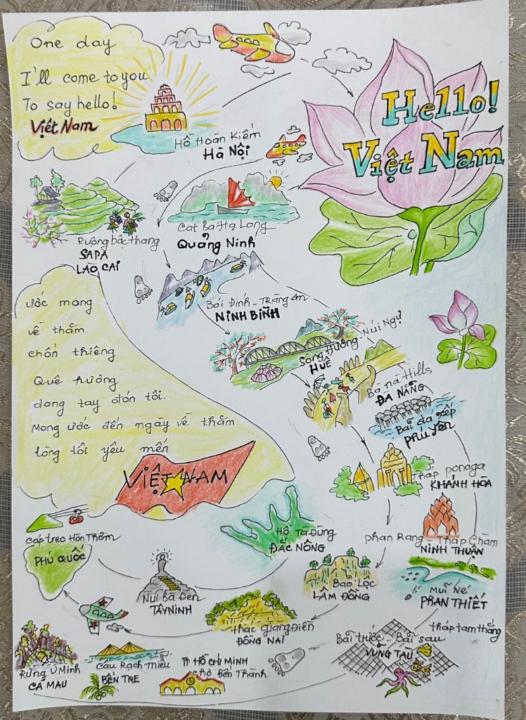 One day
I'll come to you
To say hello!
Việt Nam
Hello!
Việt Nam
Hồ Hoàn Kiếm
Hà Nội
Ruộng bậc thang
SAPA
LÀO CAI
Cat Ba Hạ Long
Quảng Ninh
Bái Đính - Tràng An
NINH BÌNH
Sông Hương - Núi Ngự
HUẾ
Ba na Hills
ĐÀ NẴNG
Bãi đá đĩa
PHÚ YÊN
Tháp ponaga
KHÁNH HÒA
Phan Rang - Tháp Chàm
NINH THUẬN
Mũi Né
PHAN THIẾT
ước mong
về thăm
chốn thiêng
Quê hương
dang tay đón tôi.
Mong ước đến ngày về thăm
lòng tôi yêu mến
VIỆT NAM
cáp treo Hòn Thơm
PHÚ QUỐC
Núi Bà Đen
TÂY NINH
Hồ Tà Đùng
ĐẮC NÔNG
Bảo Lộc
LÂM ĐỒNG
Thác Giang Điền
ĐỒNG NAI
tháp tam thắng
Bãi trước - Bãi sau
VŨNG TÀU
Rừng U Minh
CÀ MAU
Cầu Rạch Miễu
BẾN TRE
TP HỒ CHÍ MINH
chợ Bến Thành